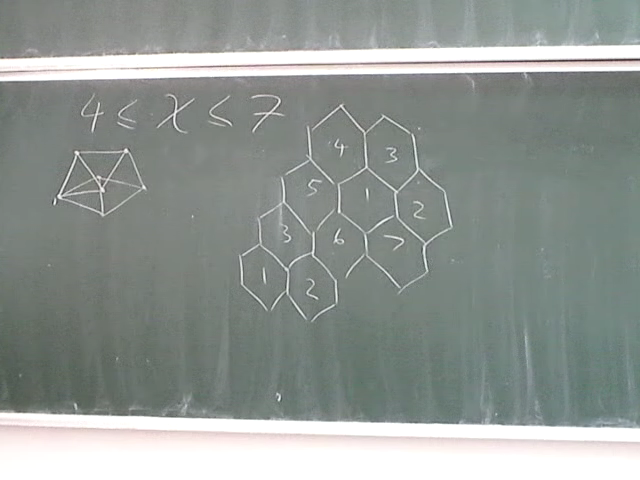 4 ≤ χ ≤ 7
4 3
5 1 2
3 6 7
1 2